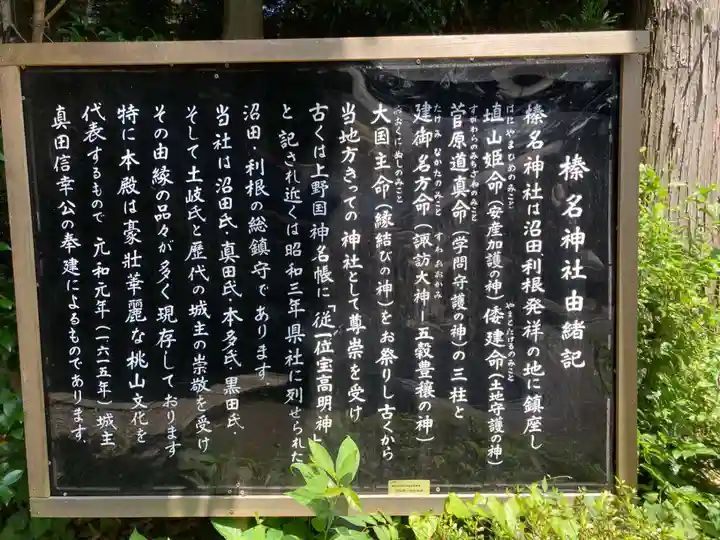 榛名神社由緒記
榛名神社は沼田利根発祥の地に鎮座し
埴山姫命(安産加護の神)倭建命(土地守護の神)
はにやまひめのみこと やまとたけるのみこと
菅原道真命(学問守護の神)の三柱と
すがわらのみちざねのみこと
建御名方命(諏訪大神ー五穀豊穣の神)
たけみなかたのみこと すわおおかみ
大国主命(縁結びの神)をお祭りし古くから
おおくにぬしのみこと
当地方きっての神社として尊崇を受け
古くは上野国神名帳に「従一位宝高明神」
と記され近くは昭和三年県社に列せられた
沼田・利根の総鎮守であります
当社は沼田氏・真田氏・本多氏・黒田氏・
そして土岐氏と歴代の城主の崇敬を受け
その由縁の品々が多く現存しております
特に本殿は豪壮華麗な桃山文化を
代表するもので 元和元年(一六一五年)城主
真田信幸公の奉建によるものであります